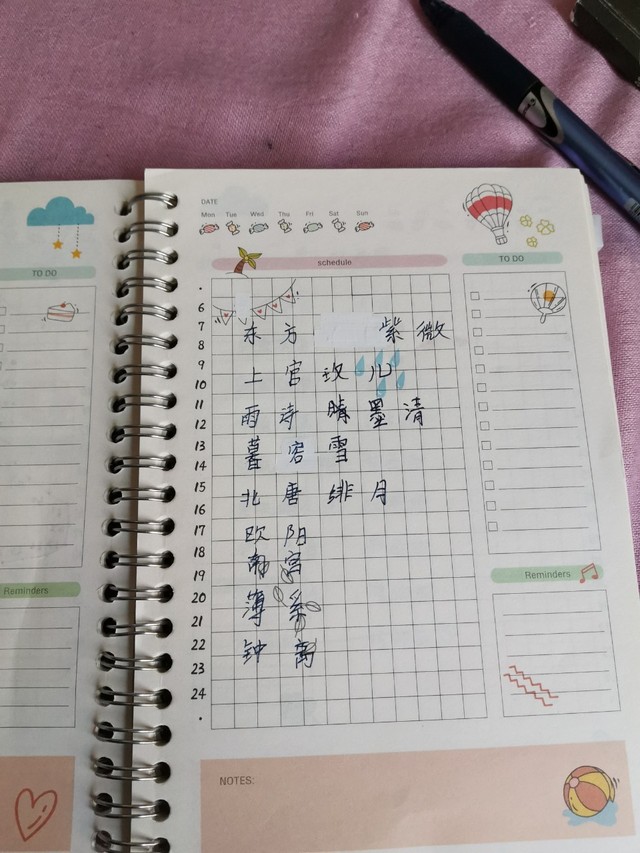 DATE
Mon Tue Wed Thu Fri Sat Sun
schedule
TO DO
TO DO
6
7
东方 紫微
8
9
上官玫儿
10
11
雨诗 墨清
12
13
容雪
14
15
北唐绯月
16
17
欧阳
18
宫
19
20
21
22
钟离
23
24
Reminders
Reminders
NOTES: